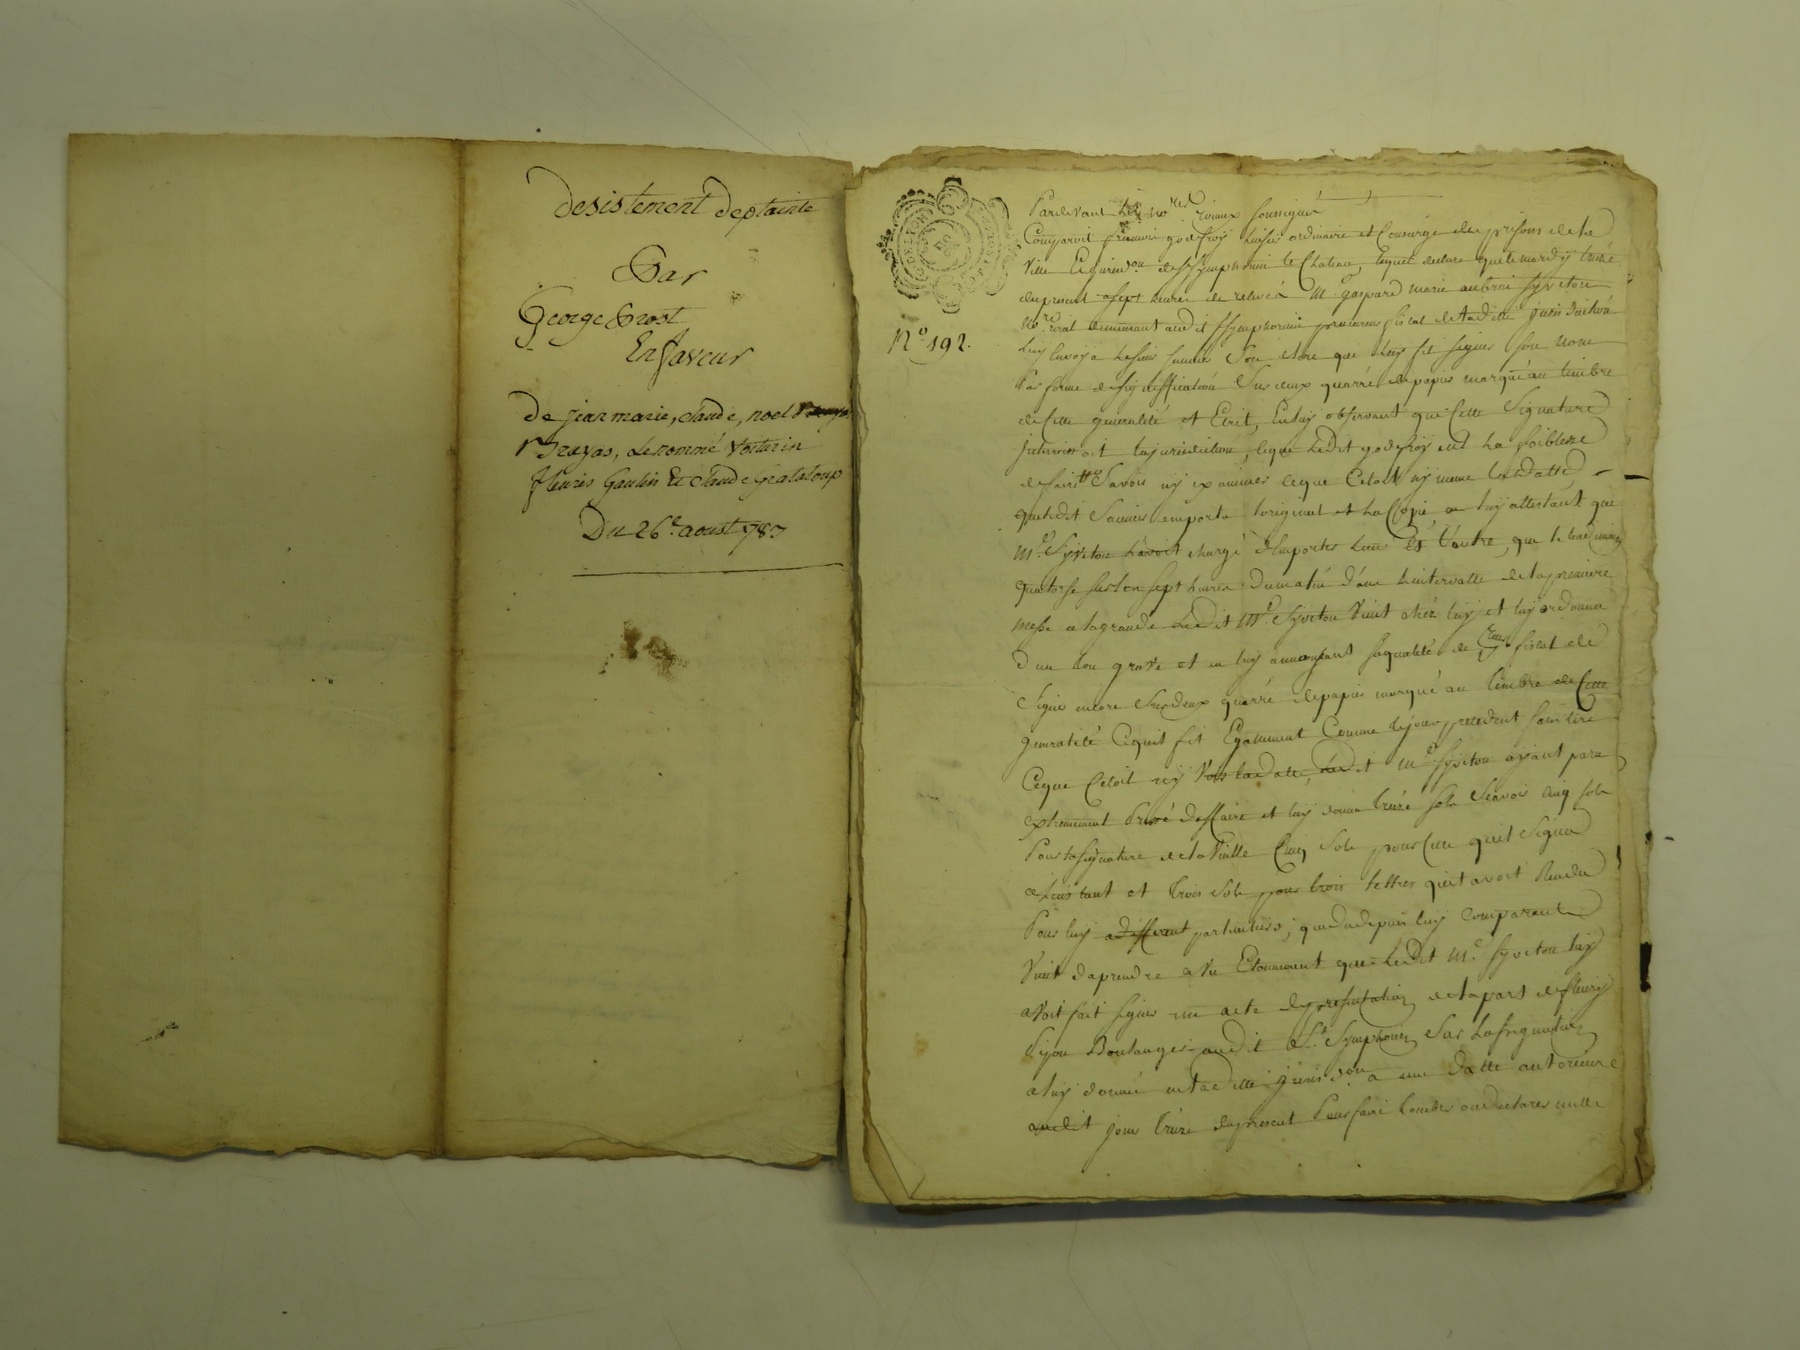 Desistement deplainte
Par
George Prost
En faveur
De jean marie, claude, noel
trayas, Le nommé Voiturin
fleuris Gaulin Et claude Grataloup
Du 26e. aoust 787
N.o 192.
Pardevant Les nores. royaux soussignés
Comparoit françois godefroy huissier ordinaire et Concierge des prisons de la
Ville Et jurisdon. de St Symphorien le Chateau, lequel declare que le mardy treize
du present a sept heures de relevée Me. gaspard marie syveton
nore. roial demeurant audit St Symphorien procureur fiscal de la ditte jurisdiction
Luy envoya le sieur son clerc qui luy fit signer son nom
Par forme de signiffication Sur deux quarrés de papier marqué au timbre
de cette generalité et Ecrit, En luy observant que Cette Signature
la jurisdiction, ce que Ledit godefroy eut La foiblesse
de faire Sans Savoir ny examiner ce que C'etoit ny meme la datte,
que ledit emporta l'original et La Copie en luy attestant que
Me. Syveton L'avoit chargé d'emporter L'une Et L'autre, que le lendemain
quatorse sur les sept heures du matin dans L'intervalle de la premiere
messe a la grande Ledit Me. Syveton Vint chez luy et luy ordonna
d'un ton grave et en luy annonçant sa qualité de preur. fiscal de
Signer encore Sur deux quarrés de papier marqué au timbre de Cette
generalité Ce qu'il fit Egalement Comme le jour precedent sans lire
Ce que C'etoit ny Voir la datte, Ledit Me. Syveton ayant paru
extremement pressé d'affaire et luy donna treize sols Scavoir cinq sols
Pour la signature de la Veille Cinq Sols pour Celle qu'il Signa
a L'instant et trois Sols pour trois lettres qu'il avoit Rendu
Pour luy a different particuliers; que du depuis luy Comparant
Vient d'aprendre avec Etonnement que Ledit Me. Syveton luy
avoit fait signer un acte de presentation de la part de fleury
Pijon Boulanger audit St. Symphorien Sur L'assignation
a luy donnée en la ditte jurisdon. a une datte anterieure
audit jour treize du present Pour faire tomber ou declarer nulle